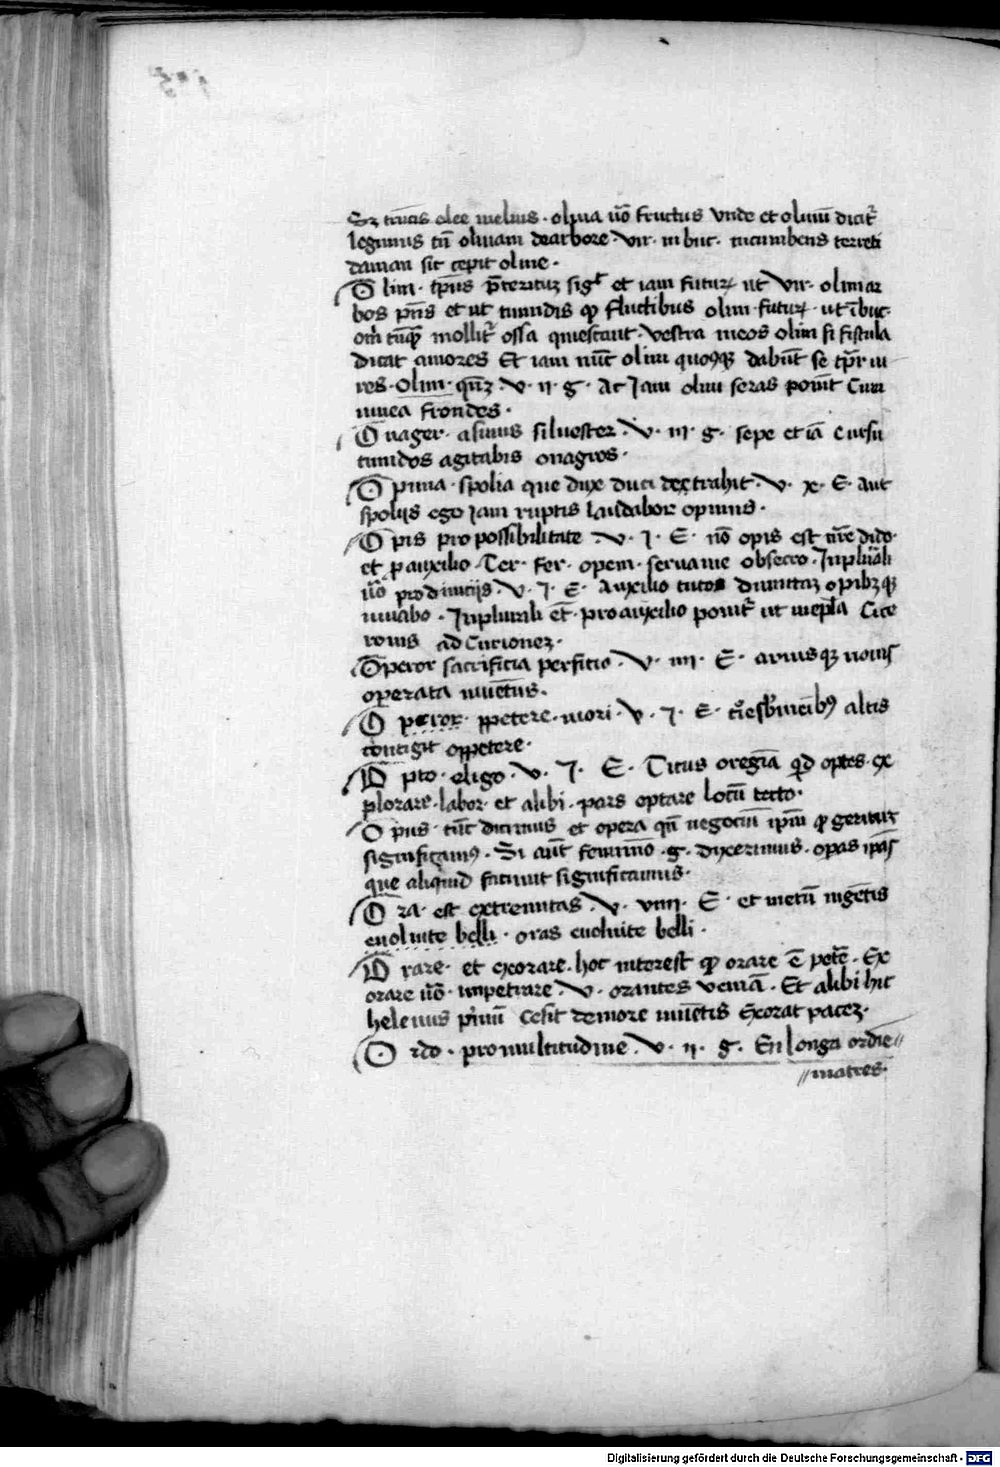 Sꝫ truncis olee melius · oliua ūo fructus vnde et oliuū dicit᷑
legimus tn̄ oliuam dearbore · vir · in buc · incumbens tereti
damon sic cepit oliue ·
O lim · tp̄us p̄teritū sigᷓ et iam futuꝝ ut vir · olim ar
bos pn̄s et ut tumidis qͣ fluctibus olim · futuꝝ · ut ī buc
om̄ tūqꝫ mollit᷑ ossa quiescant · vestra meos olim si fistula
dicat amores Et iam nūc olim quocqꝫ dabūt se tp̄r ui
res · Olim · qn̄ꝫ · v · ii · g · Ac Jam olim seras posuit Cum
uinea frondes ·
O nager · asinus siluester · v · iii · g · sepe et iā cursu
timidos agitabis onagros ·
O pima · spolia que dux duci dextrahit · v · x · E · aut
spolijs ego Jam ruptis laudabor opimis ·
O pis pro possibilitate · v · J · E · nō opis est nr̄e dido ·
et p auxilio · Ter · fer · opem · serua me obsecro · Jnpluͣali
ūo pro diuicijs · v · J · E · Auxilio tutos dimittā opibꝫqꝫ
iuuabo · Jnplurali et̄ · pro auxilio ponit᷑ ut inepl̄a Cice
ronis ad Curionez ·
Operor sacrificia perficio · v · iiii · E · aruisqꝫ nouis
operata iuuētus ·
O peror · ppetere · mori · v · J · E · altis
contigit oppetere ·
O pto · eligo · v · J · E · Titus oregiā qͥd optes · ex
plorare · labor · et alibi · pars optare locū tecto ·
O pus · tūc dicimus et opera qn̄ negociū ipm̄ qͣ geritur
significamꝰ · Si aūt feminīo · g · dixerimus · opas ipās
que aliquid faciunt significamus ·
O ra · est extremitas · v · viiii · E · et mecū ingētis
euoluite belli · oras euoluite belli ·
O rare · et exorare · hoc interest qͣ orare ē petē · Ex
orare ūo · impetrare · v · orantes veniā · Et alibi hic
helenus p̄imū cesis demore iuuētis Exorat pacez ·
O rdo · pro multitudine · v · ii · g · En longa ordīe //
// matres ·
Digitalisierung gefördert durch die Deutsche Forschungsgemeinschaft - DFG